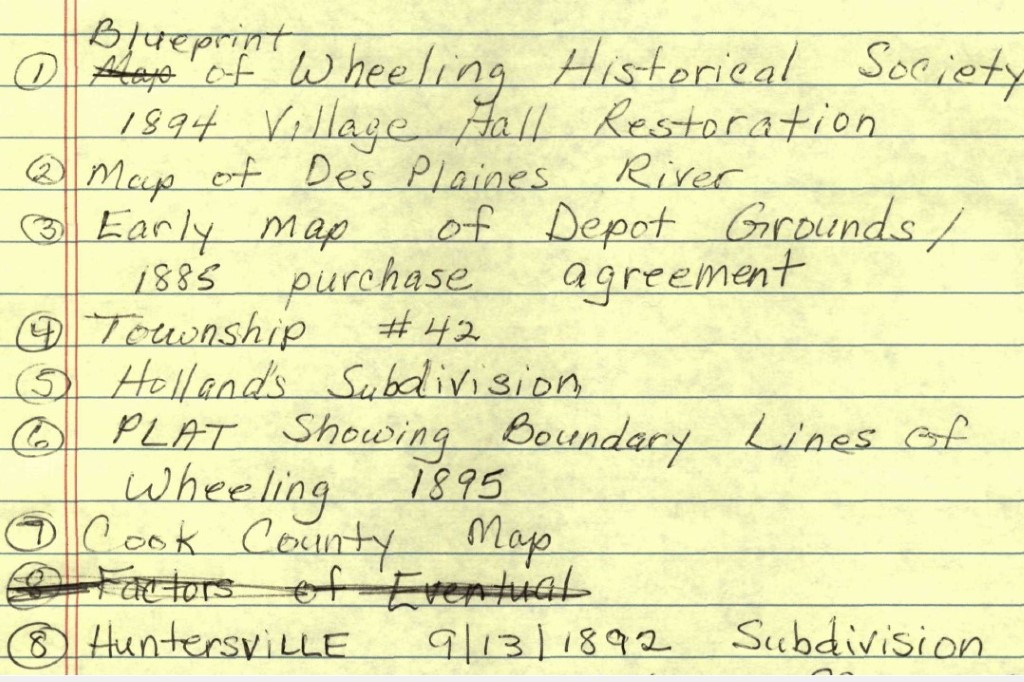 Blueprint
① Map of Wheeling Historical Society
1894 Village Hall Restoration
② Map of Des Plaines River
③ Early map of Depot Grounds /
1885 purchase agreement
④ Township #42
⑤ Holland's Subdivision
⑥ PLAT Showing Boundary Lines of
Wheeling 1895
⑦ Cook County Map
⑧ Factors of Eventual
⑧ HuntersviLLE 9/13/1892 Subdivision